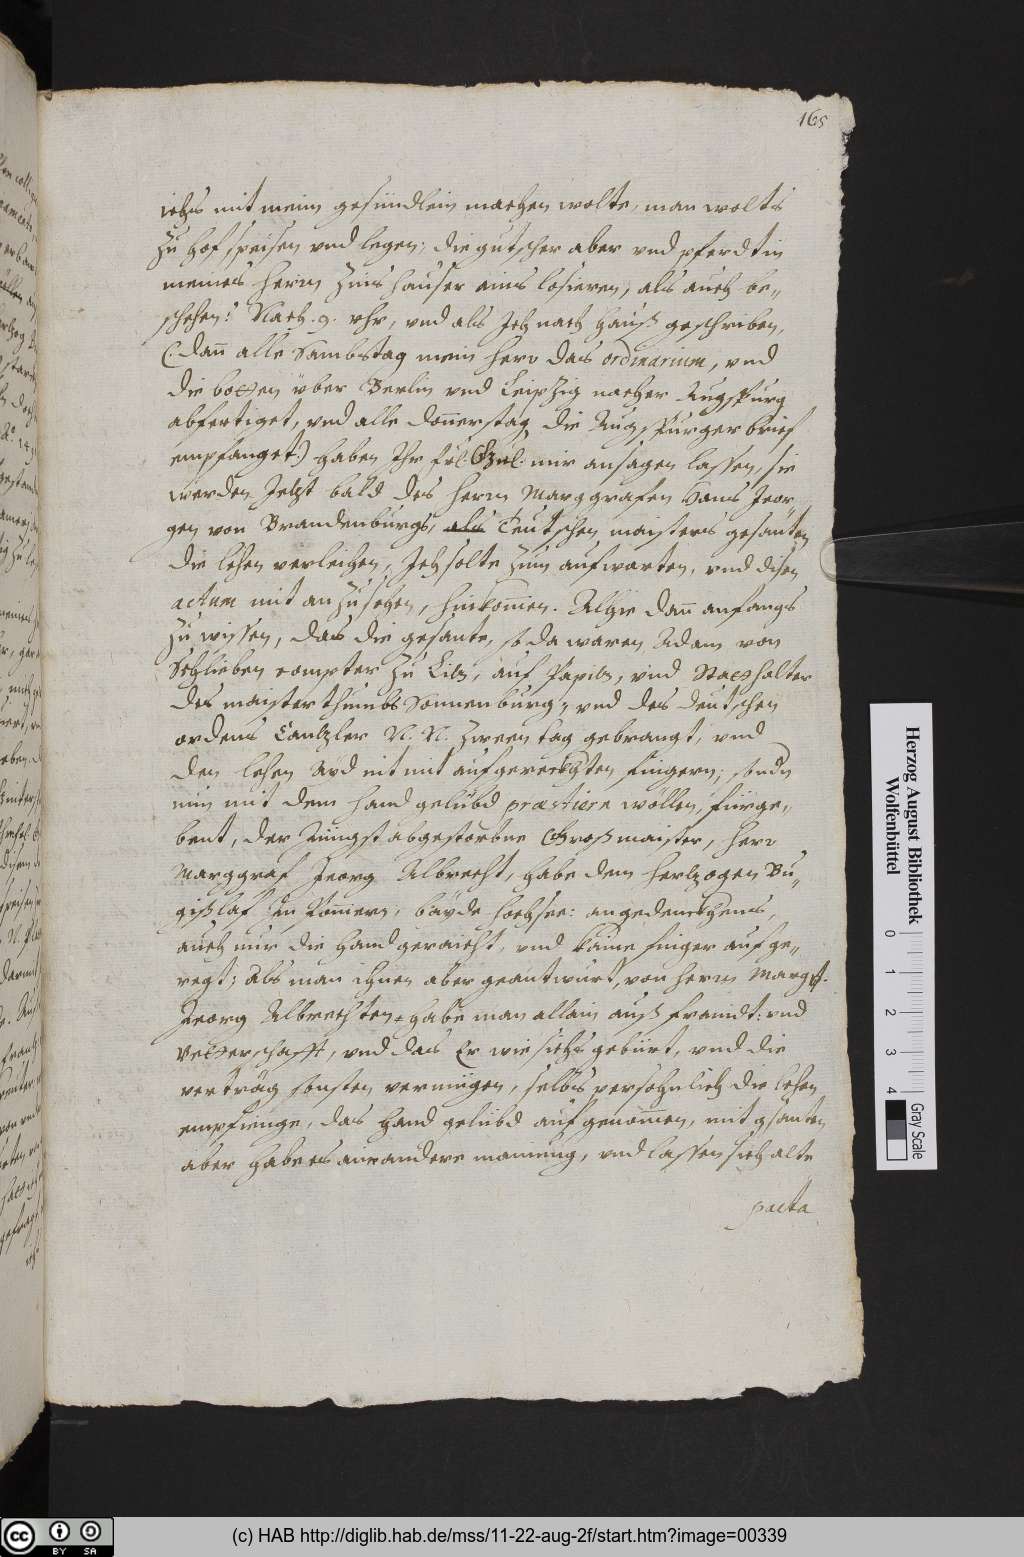 165
ichs mit meim gesündlein machen wolte, man wolts
zu hof speisen vnd legen, die gutscher aber vnd pferdt in
meines herrn zins hauser eins losieren, als auch be-
schehen: Nach .9. vhr, vnd als Ich nach hauß geschriben,
(: dan̄ alle Sambstag mein herr das ordinarium, vnd
die botten yber Berlin vnd Leipzig nacher Augspurg
abfertiget, vnd alle don̄erstag die Augspurger brief
empfanget:) haben Ihr frl: Gnl: mir ansagen lassen, sie
werden Jetzt bald des herrn Marggrafen Hans Jeor-
gen von Brandenburgs, als Teutschen maisters gesanten
die lehen verleihen, Ich solte zum aufwarten, vnd disen
actum mit anzusehen, hinkom̄en. Alhie dan̄ anfangs
zu wissen, das die gesante, so da waren Adam von
Schlieben compter zu Litz, auf Papitz, vnd Stathalter
des maisterthumbs Sonnenburg, vnd des deutschen
ordens Cantzler N. N. zween tag gebrangt, vnd
den lehen Ayd nit mit aufgereckhten fingern, sondn
nun mit dem hand gelübd præstiern wöllen, fürge-
bent, der Jüngst abgestorbne Großmaister, herr
Marggraf Jeorg Albrecht, habe dem hertzogen Bu-
gißlaf in Pom̄ern, bayde hochsee: angedenckhens,
auch nur die hand geraicht, vnd kaine finger aufge-
regt; als man ihnen aber geantwurt, von herrn Marggf.
Jeorg Albrechten habe man allain auß fraindt: vnd
Vetterschafft, vnd das Er wie sichs gebürt, vnd die
verträg sonsten vermügen, selbs persohnlich die lehen
empfienge, das hand gelübd aufgenom̄en, mit gsanten
aber habe es ain andere mainung, vnd lassen sich alte
pacta
Herzog August Bibliothek
Wolfenbüttel
0 1 2 3 4
Gray Scale
cc BY SA
(c) HAB http://diglib.hab.de/mss/11-22-aug-2f/start.htm?image=00339